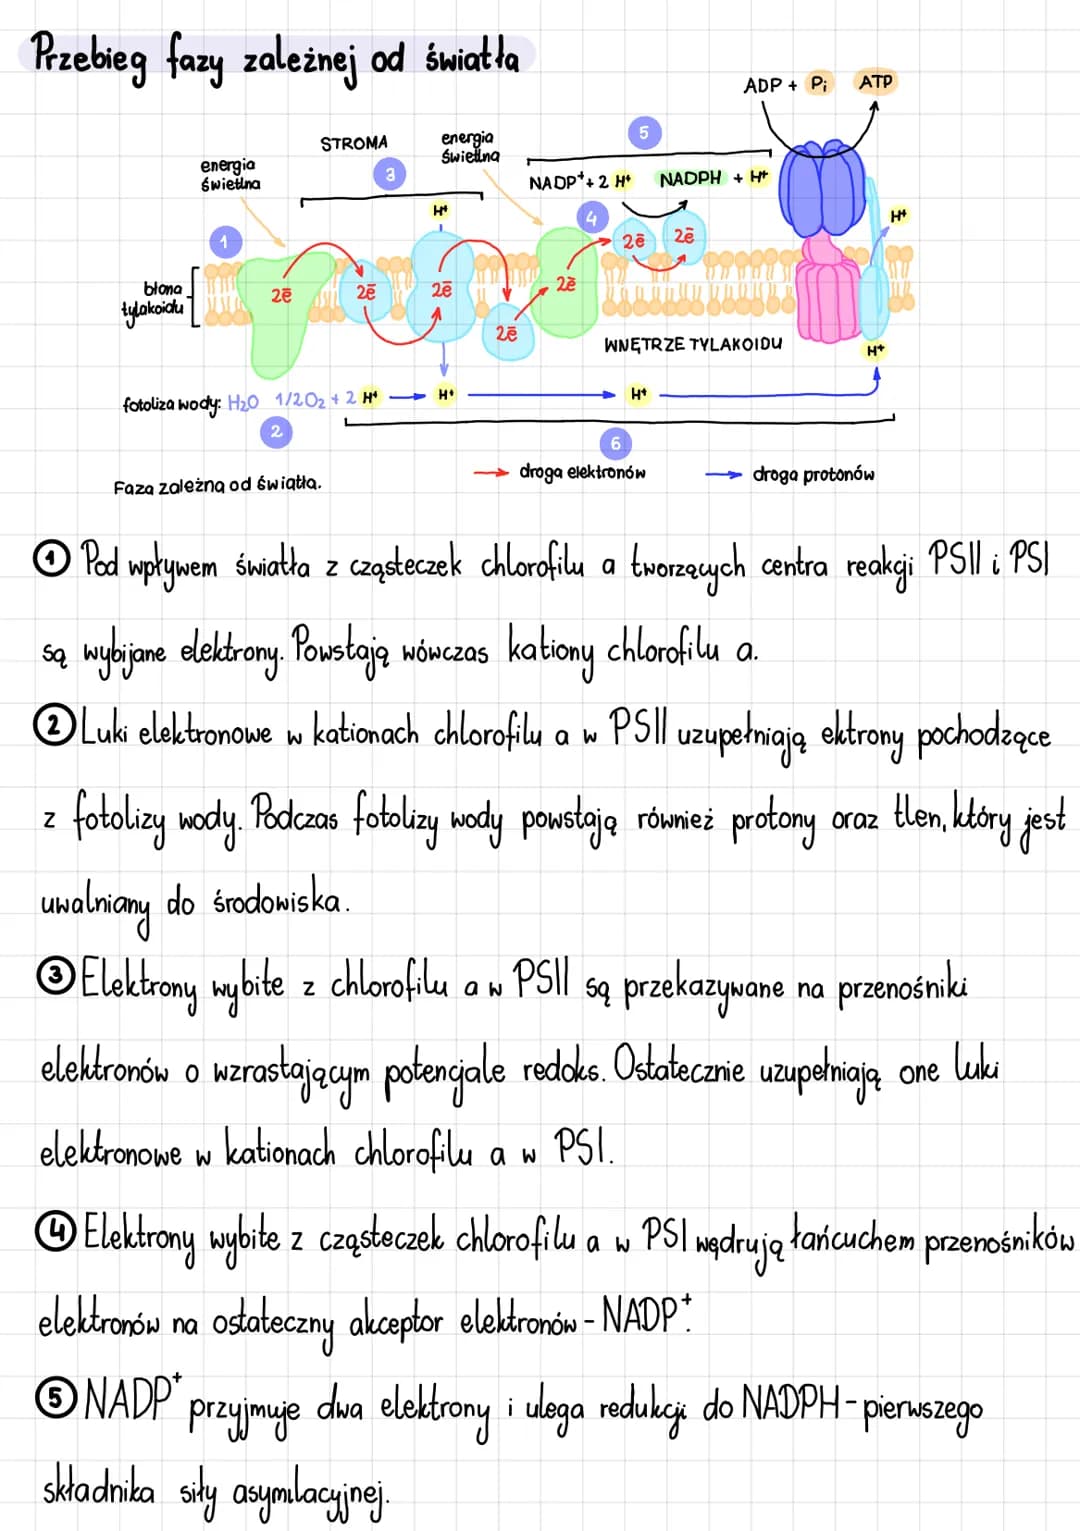 Przebieg fazy zależnej od światła
ADP + Pi ATP
STROMA
energia
świetlna
energia
świetlna
5
3
NADP⁺ + 2 H⁺ NADPH + H⁺
H⁺
4
H⁺
1
2ē
2ē
błona
tylakoidu
2ē
2ē
2ē
2ē
2ē
WNĘTRZE TYLAKOIDU
H⁺
fotoliza wody: H₂O 1/2O₂ + 2 H⁺
H⁺
H⁺
2
6
Faza zależna od światła.
droga elektronów
droga protonów
① Pod wpływem światła z cząsteczek chlorofilu a tworzących centra reakcji PSII i PSI
są wybijane elektrony. Powstają wówczas kationy chlorofilu a.
② Luki elektronowe w kationach chlorofilu a w PSII uzupełniają ektrony pochodzące
z fotolizy wody. Podczas fotolizy wody powstają również protony oraz tlen, który jest
uwalniany do środowiska.
③ Elektrony wybite z chlorofilu a w PSII są przekazywane na przenośniki
elektronów o wzrastającym potencjale redoks. Ostatecznie uzupełniają one luki
elektronowe w kationach chlorofilu a w PSI.
④ Elektrony wybite z cząsteczek chlorofilu a w PSI wędrują łańcuchem przenośników
elektronów na ostateczny akceptor elektronów - NADP⁺.
⑤ NADP⁺ przyjmuje dwa elektrony i ulega redukcji do NADPH - pierwszego
składnika siły asymilacyjnej.